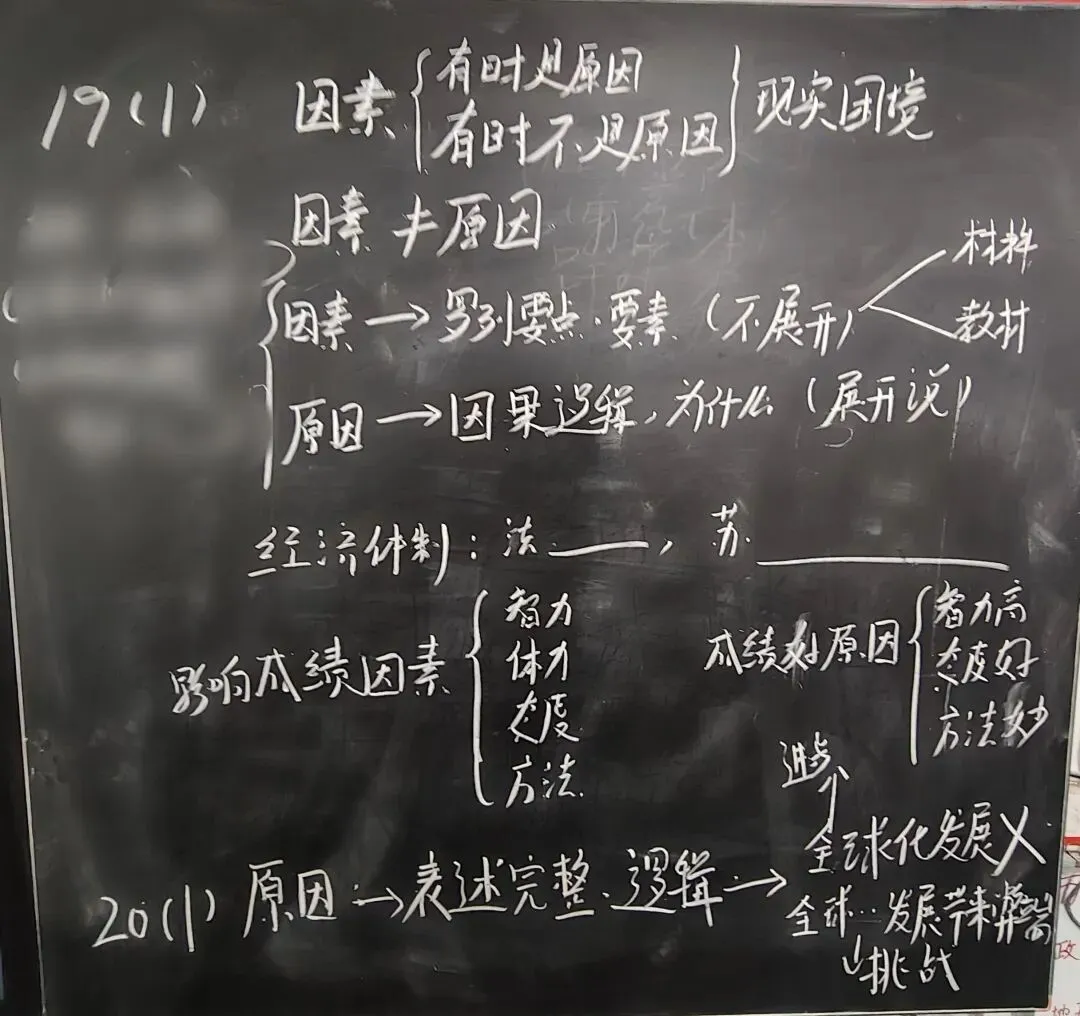 19(1) 因素 { 有时是原因
有时不是原因 } 现实困境
因素≠原因
因素→罗列要点.要素(不展开) 材料
教材
原因→因果逻辑,为什么(展开说)
经济体制:法____,苏.____
影响成绩因素 { 智力
体力
态度
方法
成绩好原因 { 智力高
态度好
方法妙
20(1) 原因:→表述完整.逻辑→
全球化发展 X
全球…发展带来弊端
挑战
政